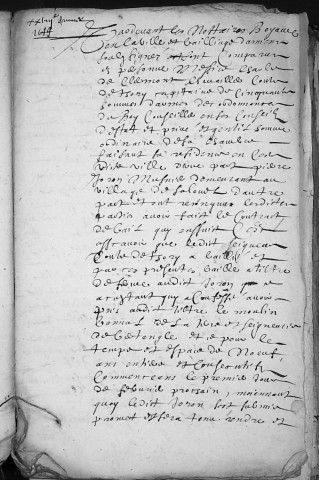 xxviij Janvier
1644
Pardevant les Nottaires Royaux
en la ville et bailliage d'amiens
soubzsignez sont comparus
en personne Messire Charles
de Clermont chevallier Conte
de thory capitaine de Cinquante
hommes d'armes des ordonnances
du Roy Conseiller en son Conseil
d'estat et privé et gentil homme
ordinaire de sa chambre
faisant sa residence en
ville d'une part pierre
Joron Musnier demeurant au
village de d'autre
part et ont recongnu lesdites
parties avoir fait le Contract
de bail quy ensuit C'est
assavoir que ledit seigneur
Conte de thory a baillé et
par ces presentes baille a tiltre
de ferme audit Joron ce
acceptant quy a Confessé avoir
pris audit tiltre le moulin
bannal de la terre et seigneurie
de et ce pour le
temps et espace de Noeuf
ans entiers et Consecutifs
Commencans le premier Jour
de febvrier prochain, moiennant
quoy ledit Joron s'est submis
promet et sera tenu rendre et